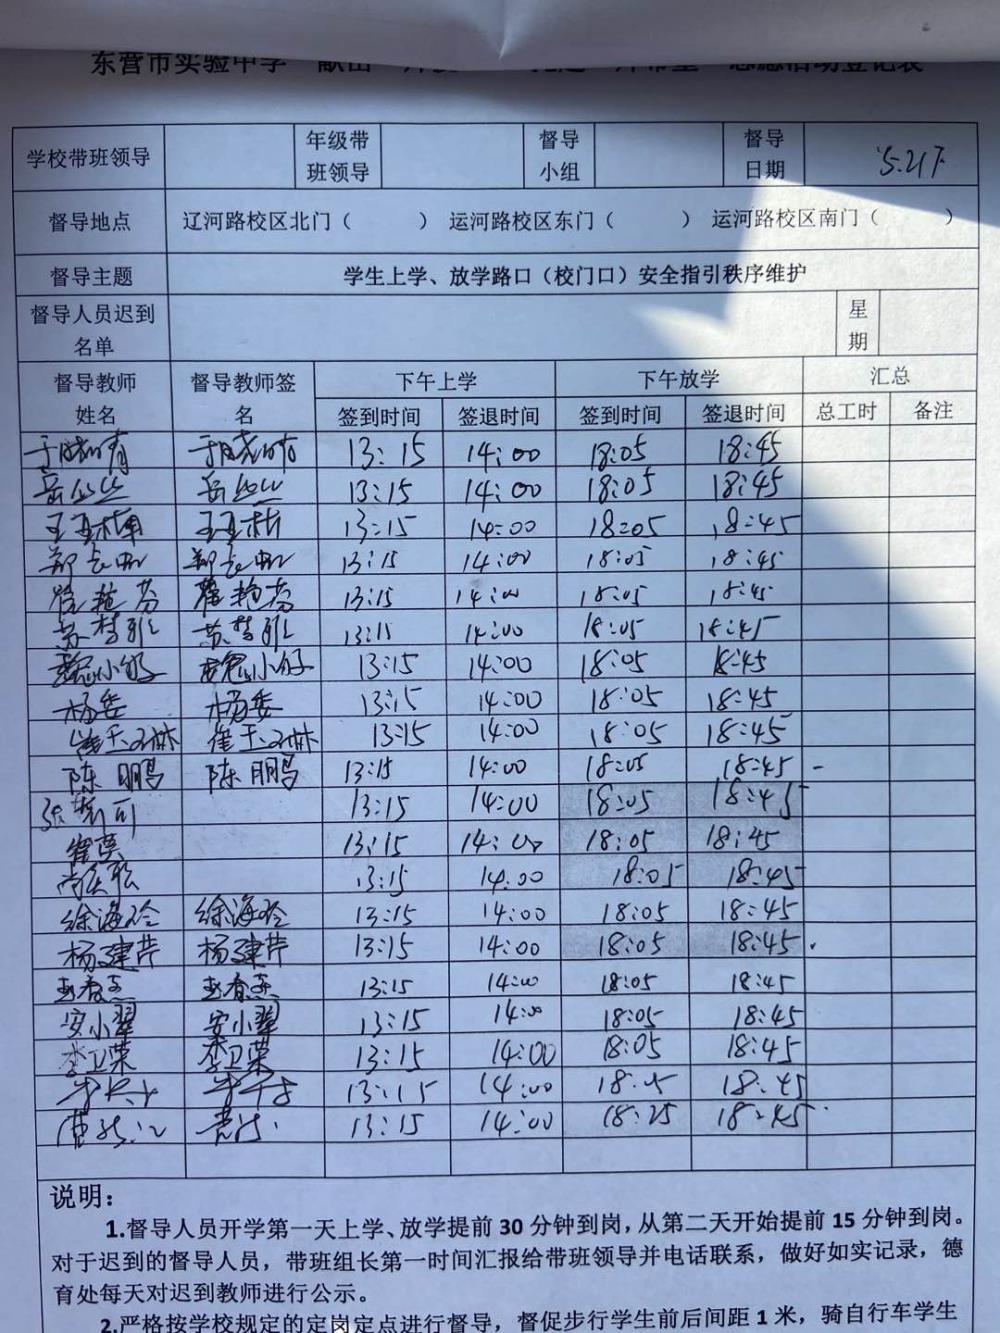 东营市实验中学
学校带班领导 年级带班领导 督导小组 督导日期 5.21下
督导地点 辽河路校区北门（ ） 运河路校区东门（ ） 运河路校区南门（ ）
督导主题 学生上学、放学路口（校门口）安全指引秩序维护
督导人员迟到名单 星期
督导教师姓名 督导教师签名 下午上学 下午放学 汇总
签到时间 签退时间 签到时间 签退时间 总工时 备注
13:15 14:00 18:05 18:45
13:15 14:00 18:05 18:45
13:15 14:00 18:05 18:45
13:15 14:00 18:05 18:45
13:15 14:00 18:05 18:45
13:15 14:00 18:05 18:45
魏小好 魏小好 13:15 14:00 18:05 18:45
杨委 杨委 13:15 14:00 18:05 18:45
崔玉琳 崔玉琳 13:15 14:00 18:05 18:45
陈鹏 陈鹏 13:15 14:00 18:05 18:45
13:15 14:00 18:05 18:45
13:15 14:00 18:05 18:45
13:15 14:00 18:05 18:45
徐海玲 徐海玲 13:15 14:00 18:05 18:45
杨建芹 杨建芹 13:15 14:00 18:05 18:45
王春燕 王春燕 13:15 14:00 18:05 18:45
安小翠 安小翠 13:15 14:00 18:05 18:45
李卫荣 李卫荣 13:15 14:00 18:05 18:45
13:15 14:00 18:45
13:15 14:00 18:25 18:45
说明：
1.督导人员开学第一天上学、放学提前 30 分钟到岗，从第二天开始提前 15 分钟到岗。
对于迟到的督导人员，带班组长第一时间汇报给带班领导并电话联系，做好如实记录，德
育处每天对迟到教师进行公示。
2.严格按学校规定的定岗定点进行督导，督促步行学生前后间距 1 米，骑自行车学生